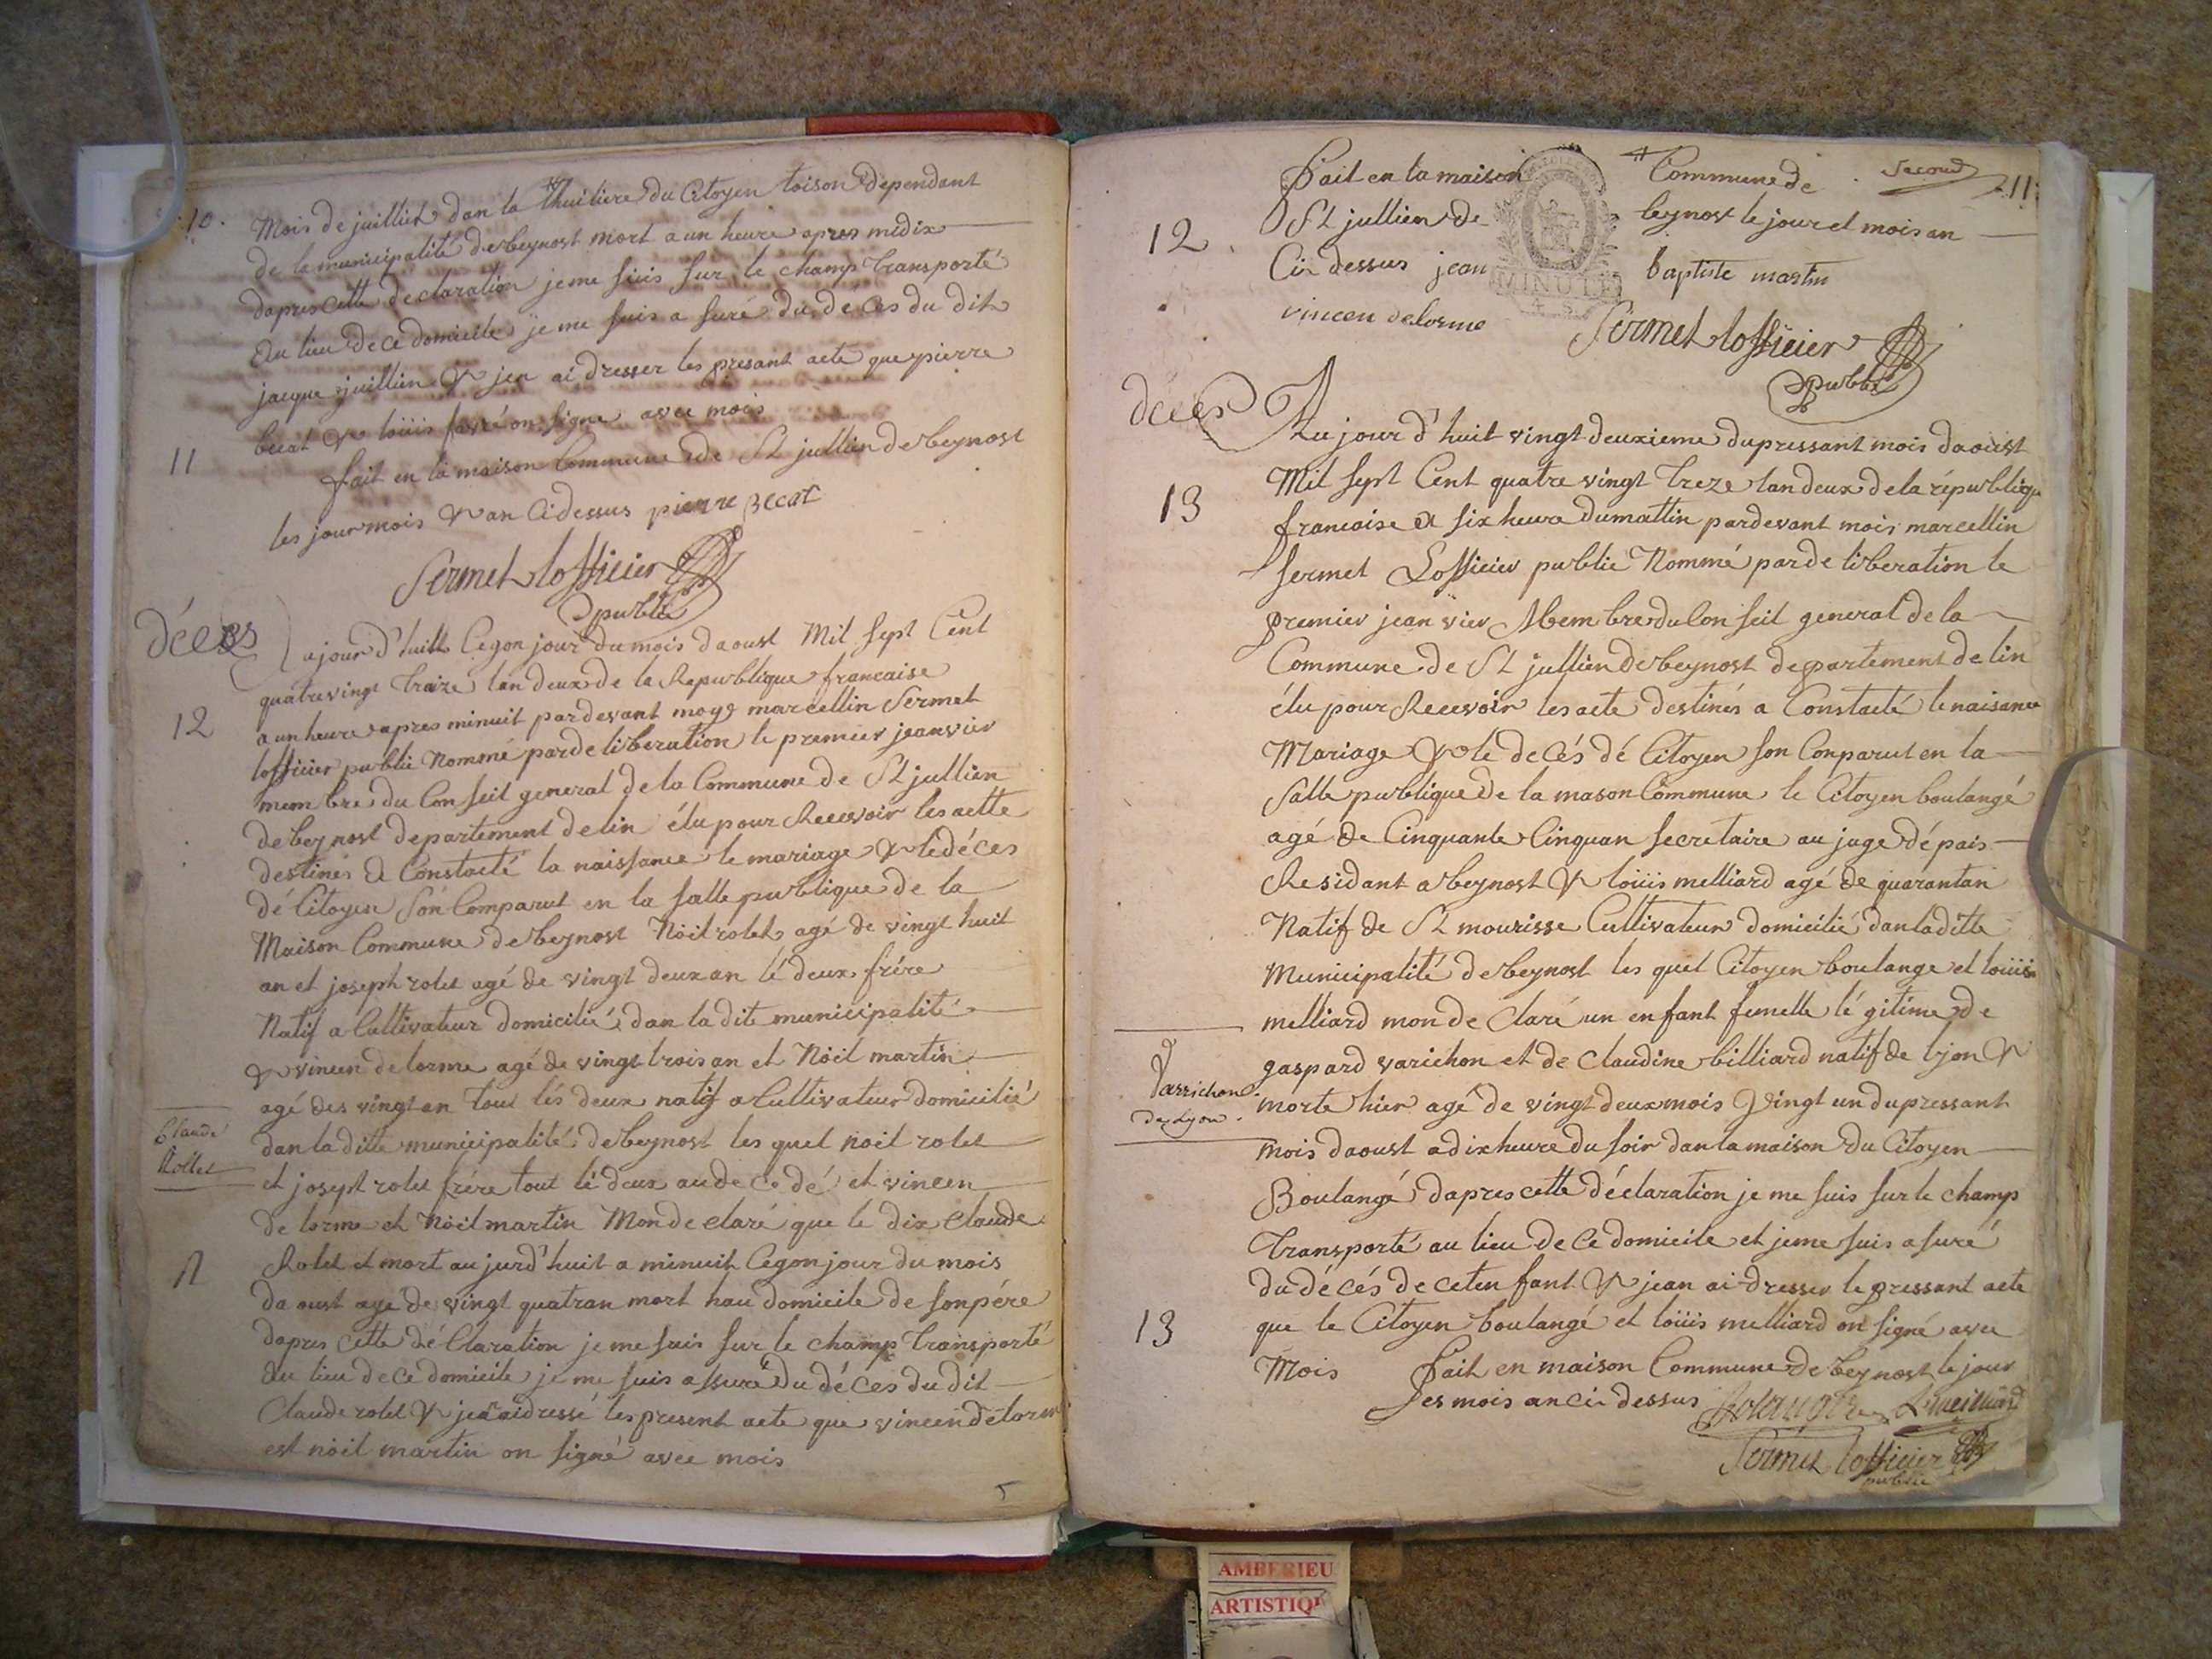 10.
Mois de juilliet dan la thuiliere du Citoyen toison dépendant
de la municipalité de beynost mort a un heure apres midix
dapres cette declaration je me suis sur le champ transporté
au lieu de ce domicile je me suis a suré du de ces du dit
jacque juillien & jen ai dresser les presant acte que pierre
becat & loüis favré on signe avec mois
11
fait en la maison Commune de St jullien de beynost
les jour mois & an Ci dessus pierre Becat
Sermet lofficier
public
décès
aujour d'huit Cegon jour du mois daoust Mil sept Cent
quatre vingt traize lan deux de la Republique francaise
12
a un heure apres minuit pardevant moys marcellin Sermet
lofficier public Nommé par deliberation le premier jeanvier
mem bre du Conseil general de la Commune de St jullien
de beynost departement de lin élu pour Recevoir les actte
destinés a Constaté la naissance le mariage & le déces
dé Citoyen son Comparut en la salle publique de la
Maison Commune de beynost Nöil rolet agé de vingt huit
an et joseph rolet agé de vingt deux an lé deux frére
Natif a Cultivateur domicilié dan la dite municipalité
& vincen de lorme agé de vingt trois an et Nöil martin
agé des vingt an tout lés deux natif a Cultivateur domicilié
Claude
Rollet
dan la ditte municipalité de beynost les quel noil rolet
et josept rolet frére tout lé deux au de Cé dé et vincen
de lorme et Nöil martin Mon de claré que lé dix Claude
11
Rolet et mort au jurd'huit a minuit Cegon jour du mois
da oust agé de vingt quatran mort hau domicile de son pére
dapres cette dé Claration je me suis sur le champ transporté
au lieu de ce domicile je me suis assuré du dé ces du dit
Claude rolet & jen ai dressé les present acte que vincen de lorme
est nöil martin on signé avec mois
5
Second
11
Fait en la maison Commune de
12
St jullien de beynost le jour et mois an
Cir dessus jean baptiste martin
MINUTE
vincen delorme
Sermet lofficier
public
décès
Au jour d'huit vingt deuxieme du pressant mois daoust
13
Mil sept Cent quatre vingt treze lan deux de la républiqu
francoise a six heure du mattin pardevant mois marcellin
sermet Lofficier public Nommé par de liberation le
premier jean vier Mem bre du Con seil general de la
Commune de St jullien de beynost departement de lin
élu pour Recevoir les acte destinés a Constaté le naisance
Mariage & le de cés dé Citoyen son Conparut en la
Salle publique de la mason Commune le Citoyen boulangé
agé de Cinquante Cinquan secretaire au juge dé pais
Residant a beynost & loüis melliard agé de quarantan
Natif de St mourisse Cultivateur domicilié dan la ditte
Municipalité de beynost les quel Citoyen boulange et loüis
melliard mon de Claré un enfant femelle lé gitime de
Varrichon
de Lyon
gaspard varichon et de Claudine billiard natif de lyon &
morte hier agé de vingt deux mois vingt un du pressant
mois daoust a dix heure du soir dan la maison du Citoyen
Boulangé dapres cette déclaration je me suis sur le champ
transporté au lieu de Ce domicile et je me suis a suré
du dé cés de cet en fant & jean ai dresser le pressant acte
13
que le Citoyen boulangé et loüis melliard on signé avec
Mois fait en maison Commune de beynost le jour
es mois an Cir dessus
Sermet lofficier
public
AMBERIEU
ARTISTIQU